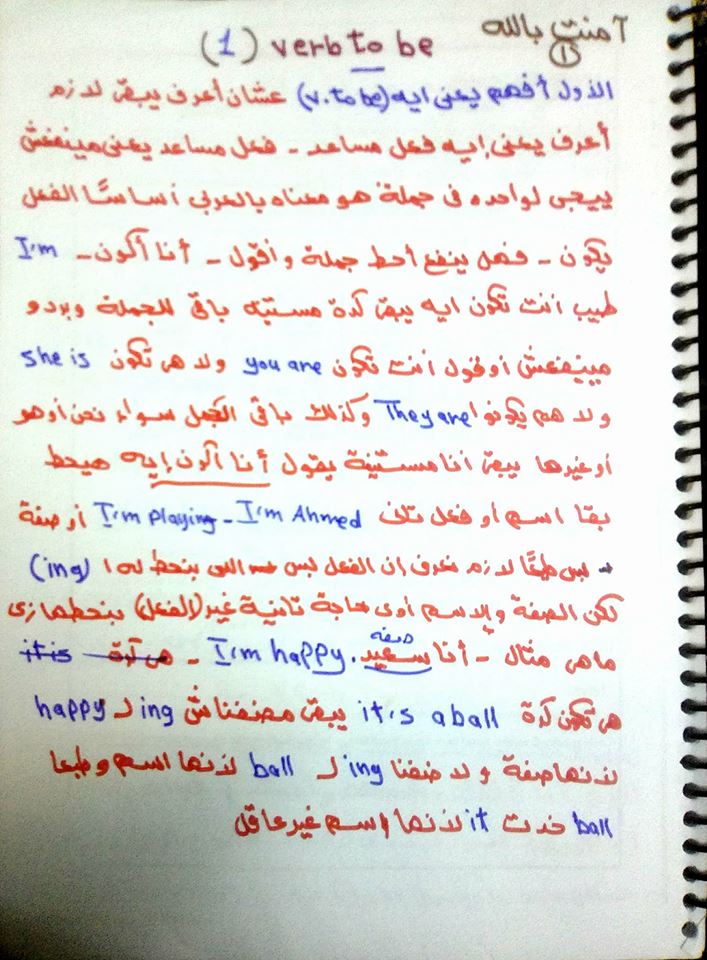 آمنت بالله
(1) verb to be
①
الأول أفهم يعنى ايه (v. to be) عشان أعرف يبقى لازم
أعرف يعنى إيه فعل مساعد - فعل مساعد يعنى مينفعش
ييجى لواحده فى جملة هو معناه بالعربى أساسًا الفعل
يكون - فهل ينفع أحط جملة وأقول - أنا أكون - I'm
طيب انت تكون ايه يبقى كدة مستنيه باقى الجملة وبردو
مينفعش أوقول أنت تكون you are ولا هى تكون she is
ولا هم يكونوا They are وكذلك باقى الجمل سواء نحن أو هو
أو غيرها يبقى أنا مستنية يقول أنا أكون إيه هيحط
بقا اسم أو فعل تانى I'm playing - I'm Ahmed أو صفة
بس طبعًا لازم نعرف إن الفعل بس اللى بنحط له (ing)
لكن الصفة والاسم أو أى حاجة تانية غير (الفعل) بنحطها زى
صفة
ما هى مثال - أنا سعيد . I'm happy - هى كرة it is
هى تكون كرة it's a ball يبقى مضفناش ing لـ happy
لأنها صفة ولا ضفنا ing لـ ball لأنها اسم وطبعا
ball خدت it لأنها اسم غير عاقل